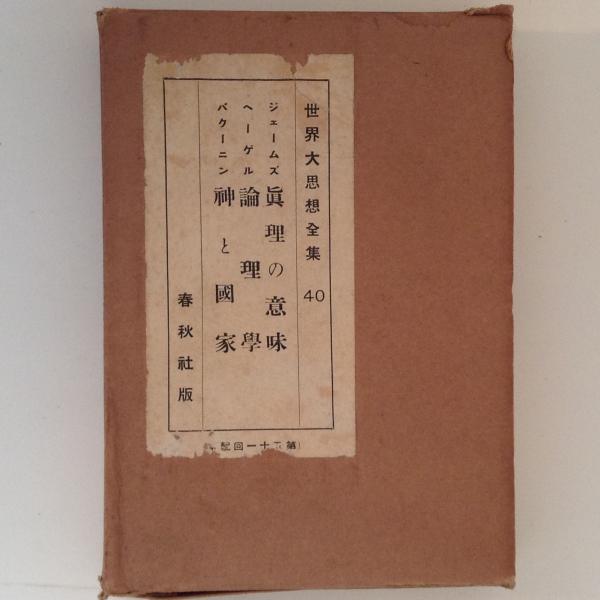 世界大思想全集 40
ジェームズ 眞理の意味
ヘーゲル 論理學
バクーニン 神と國家
春秋社版
第 十一回配